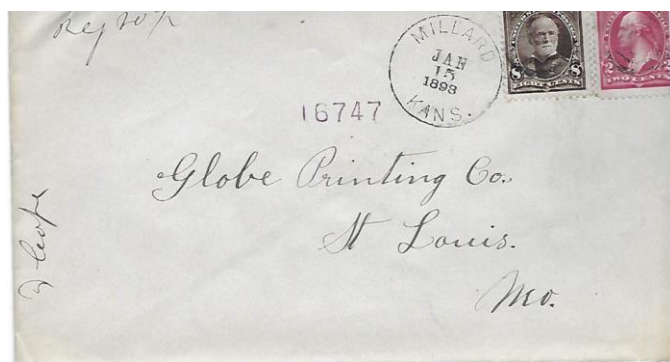 MILLARD
JAN
15
1898
KANS.
8 8
EIGHT CENTS
2 2
TWO CENTS
16747
Globe Printing Co.
St Louis.
Mo.